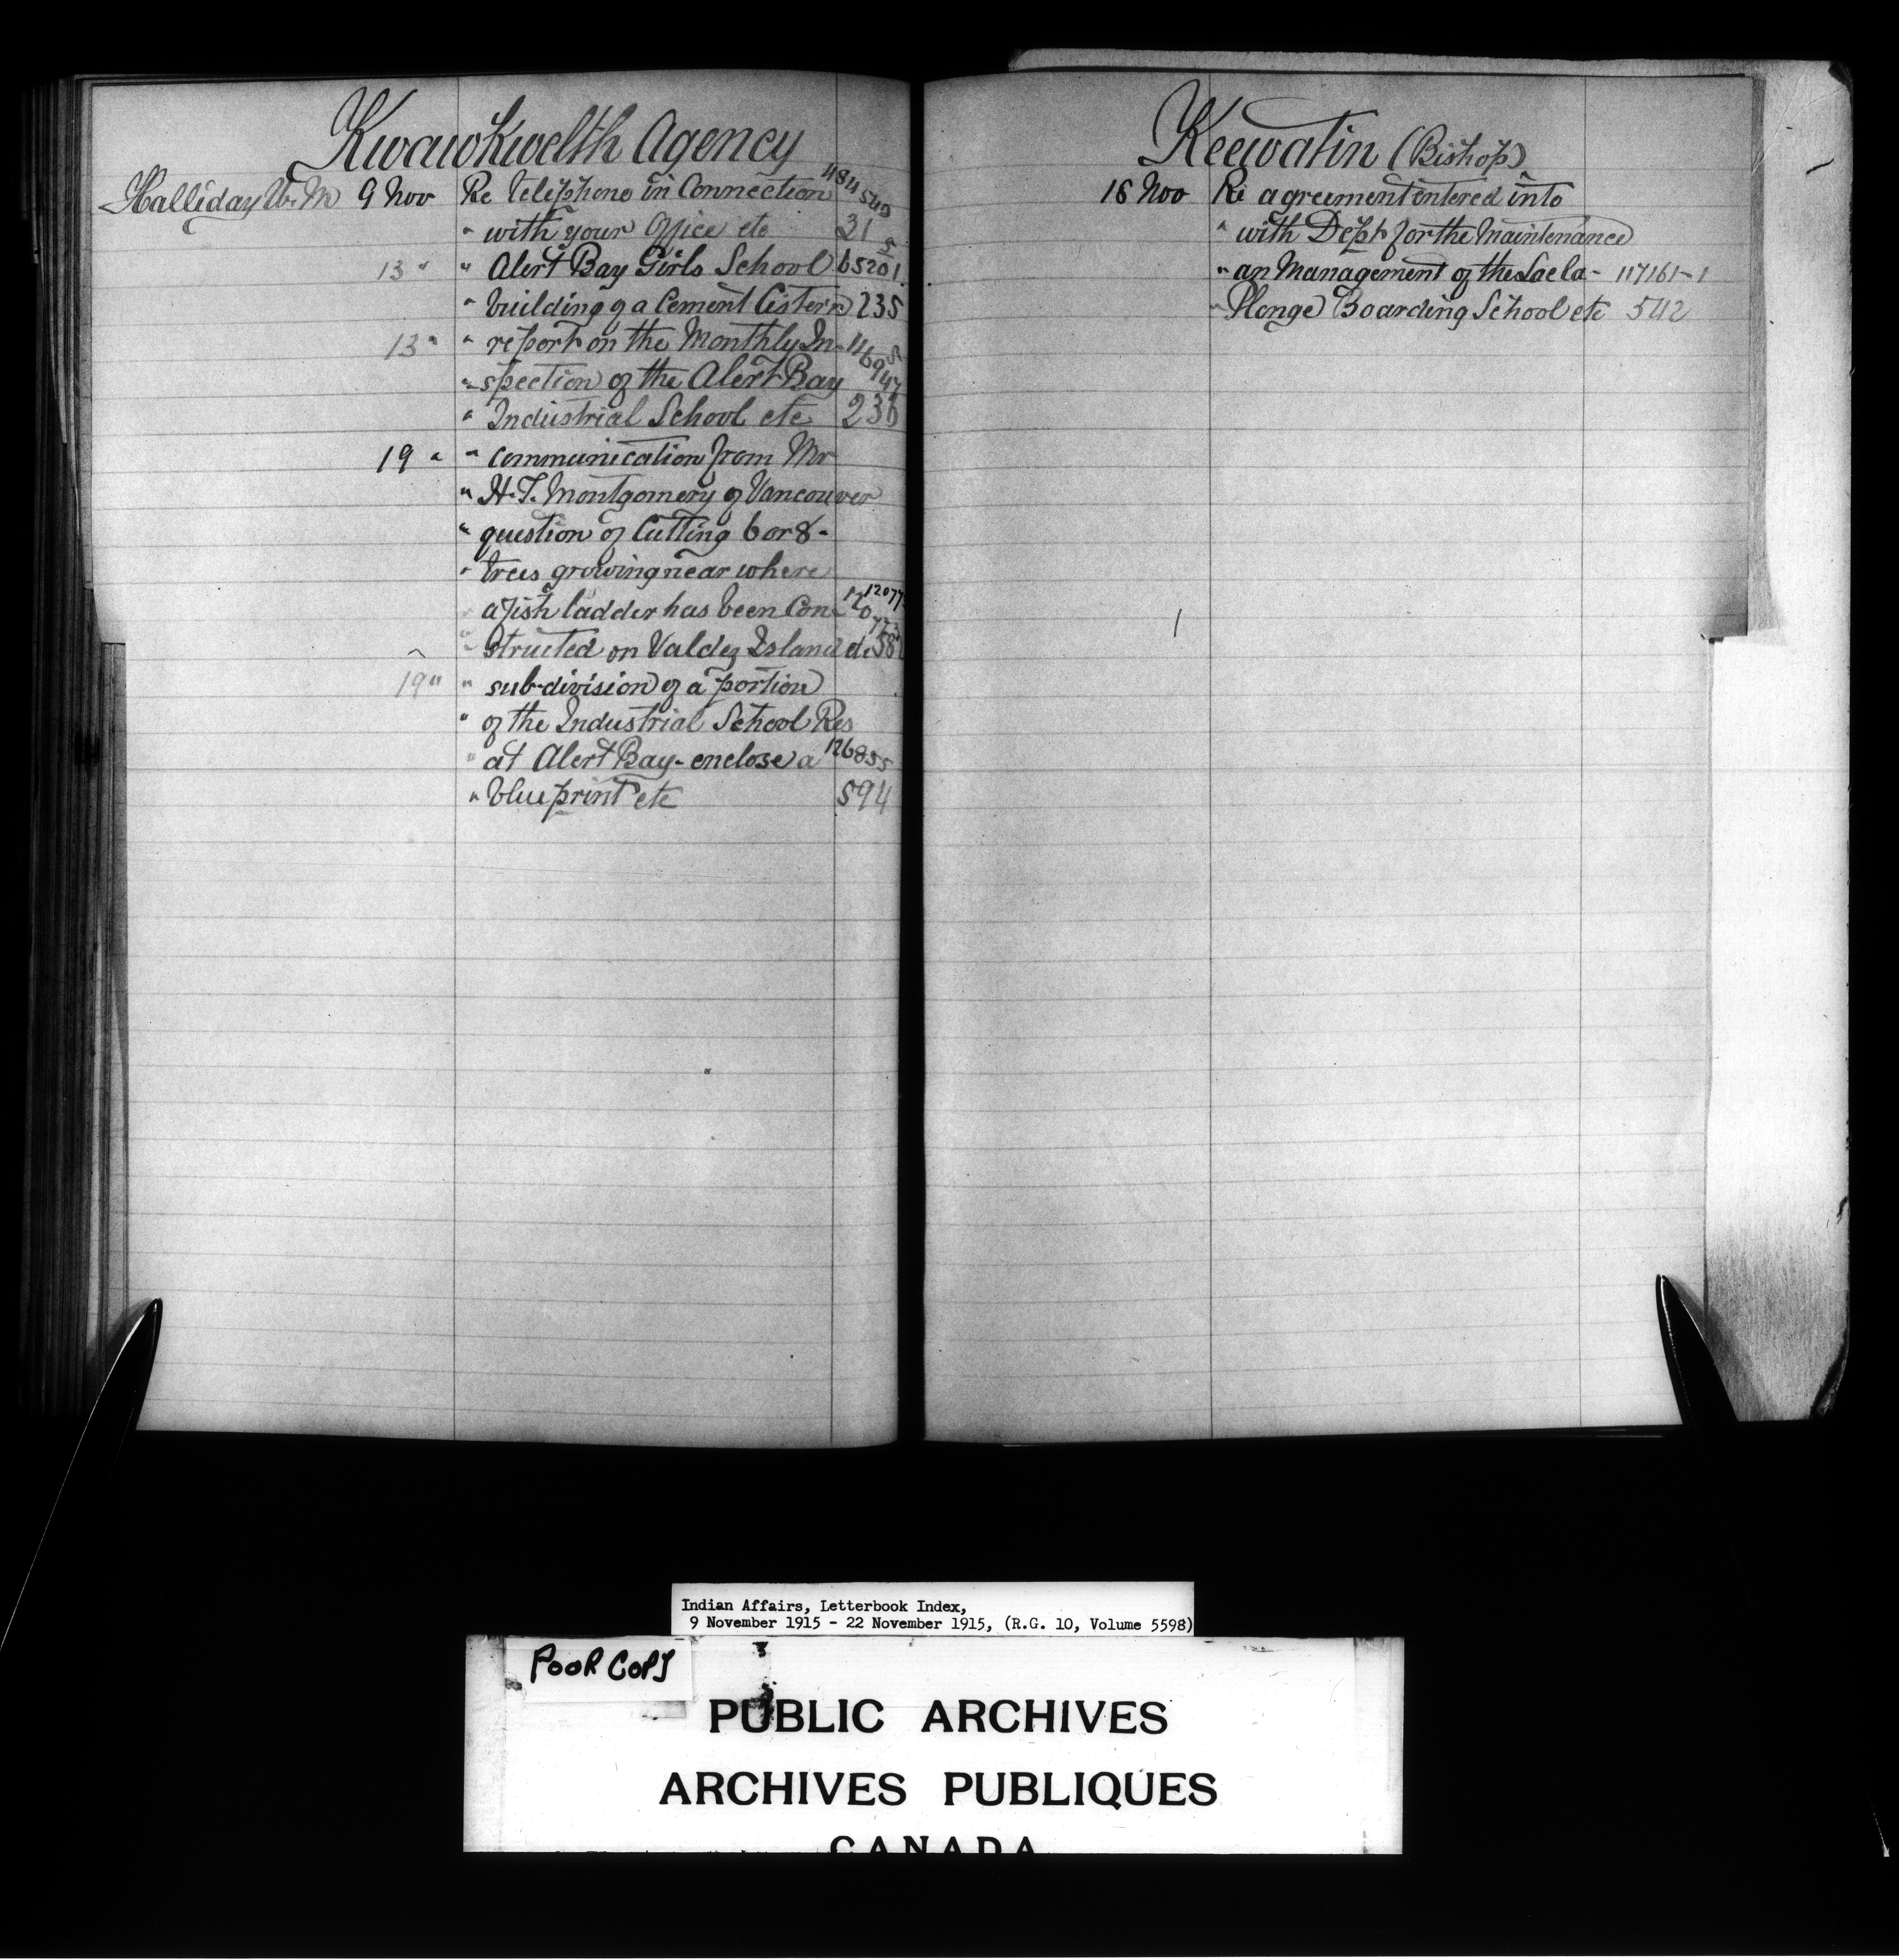 Kwawkwelth Agency
Halliday W. M 9 Nov Re telephone in Connection 484540
" with your Office etc 31
13 " " Alert Bay Girls School 65201 5
" building of a Cement Cistern 235
13 " " report on the Monthly In-
" spection of the Alert Bay
" Industrial School etc 236
19 " " communication from Mr
" H.T. Montgomery of Vancouver
" question of Cutting 6 or 8 -
" trees growing near where
" a fish ladder has been Con-
" structed on Valdez Island etc 58
19 " " sub-division of a portion
" of the Industrial School Res
" at Alert Bay - enclose a 126855
" blue print etc 594
Keewatin (Bishop)
16 Nov Re agreement entered into
" with Dept for the Maintenance
" an Management of the Lac la - 117161-1
" Plonge Boarding School etc 542
Indian Affairs, Letterbook Index,
9 November 1915 - 22 November 1915, (R.G. 10, Volume 5598)
POOR COPY
PUBLIC ARCHIVES
ARCHIVES PUBLIQUES
CANADA